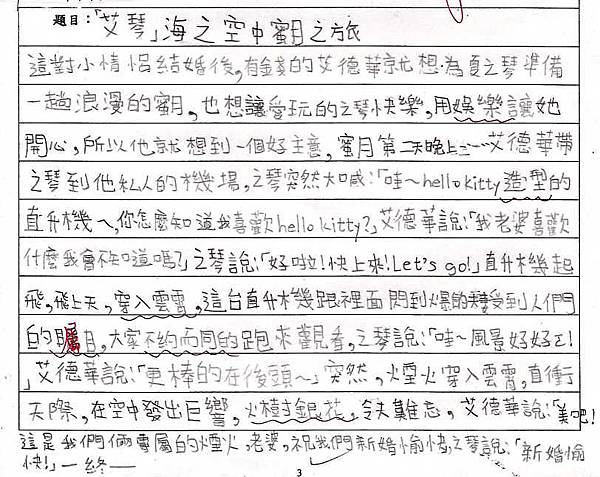 題目：「艾琴」海之空中蜜月之旅
這對小情侶結婚後，有錢的艾德華就想為夏之琴準備
一趟浪漫的蜜月，也想讓愛玩的之琴快樂，用娛樂讓她
開心，所以他就想到一個好主意，蜜月第二天晚上……艾德華帶
之琴到他私人的機場，之琴突然大喊：「哇～hello kitty造型的
直升機ㄟ，你怎麼知道我喜歡hello kitty?」艾德華說：「我老婆喜歡
什麼我會不知道嗎?」之琴說：「好啦！快上來！Let's go!」直升機起
飛，飛上天，穿入雲霄，這台直升機跟裡面閃到爆的 受到人們
的矚目，大家不約而同的跑來觀看，之琴說：「哇～風景好好ㄛ！
」艾德華說：「更棒的在後頭～」突然，煙火穿入雲霄，直衝
天際，在空中發出巨響，火樹銀花，令人難忘，艾德華說：「美吧！
這是我們倆專屬的煙火，老婆，祝我們新婚愉快，之琴說：「新婚愉
快！」—終—
3